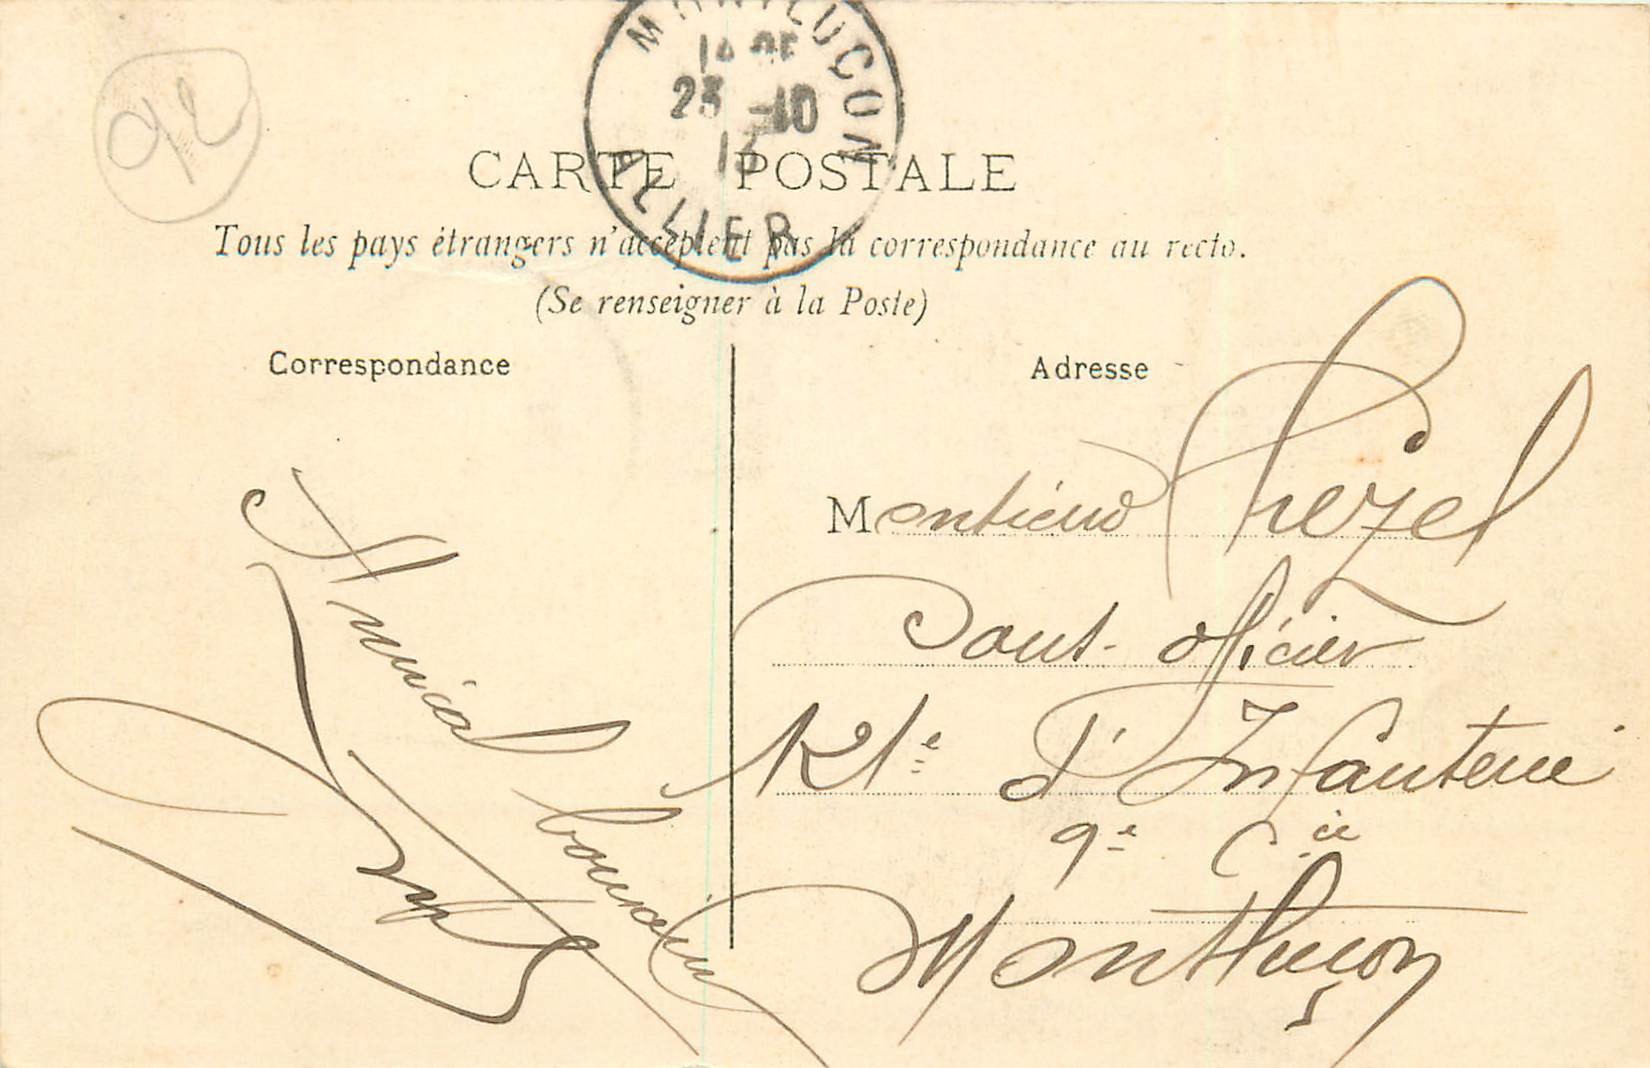 MONTLUÇON
23 -10
ALLIER
92
CARTE POSTALE
Tous les pays étrangers n'acceptent pas la correspondance au recto.
(Se renseigner à la Poste)
Correspondance
Amical
Adresse
Monsieur Phézel
Sous-officier
121e d'Infanterie
9e Cie
Montluçon